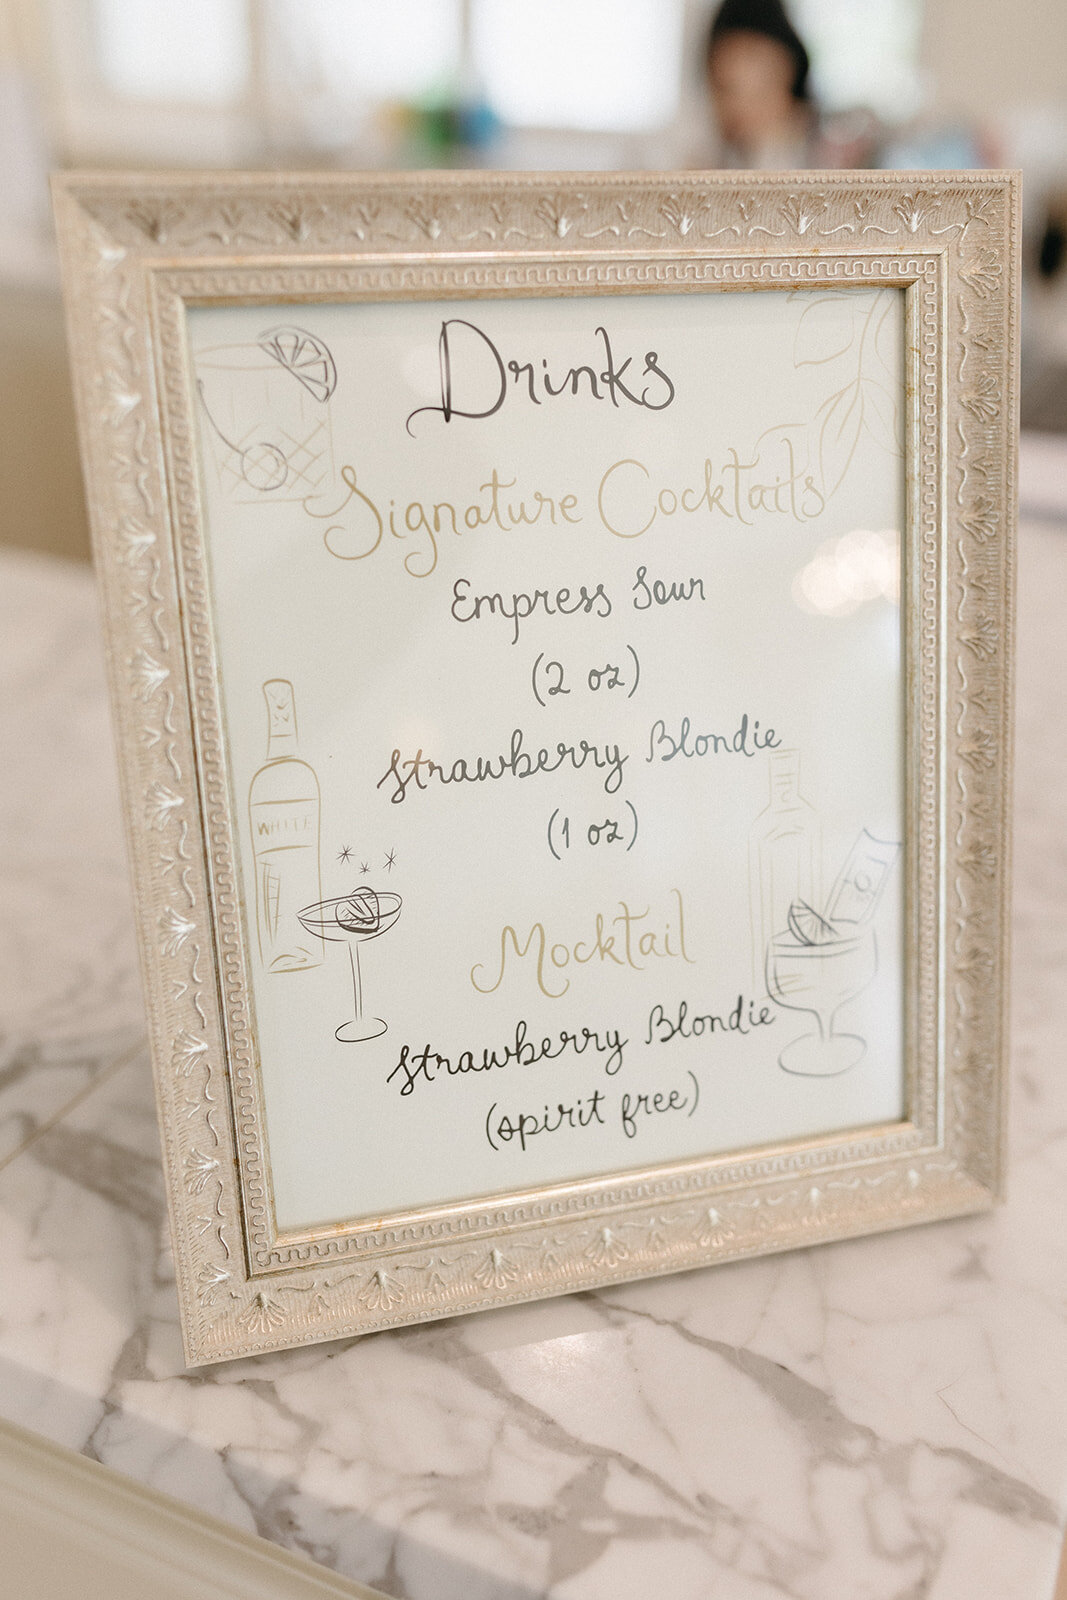 Drinks
Signature Cocktails
Empress Sour
(2 oz)
Strawberry Blondie
(1 oz)
WHITE
Mocktail
Strawberry Blondie
(spirit free)